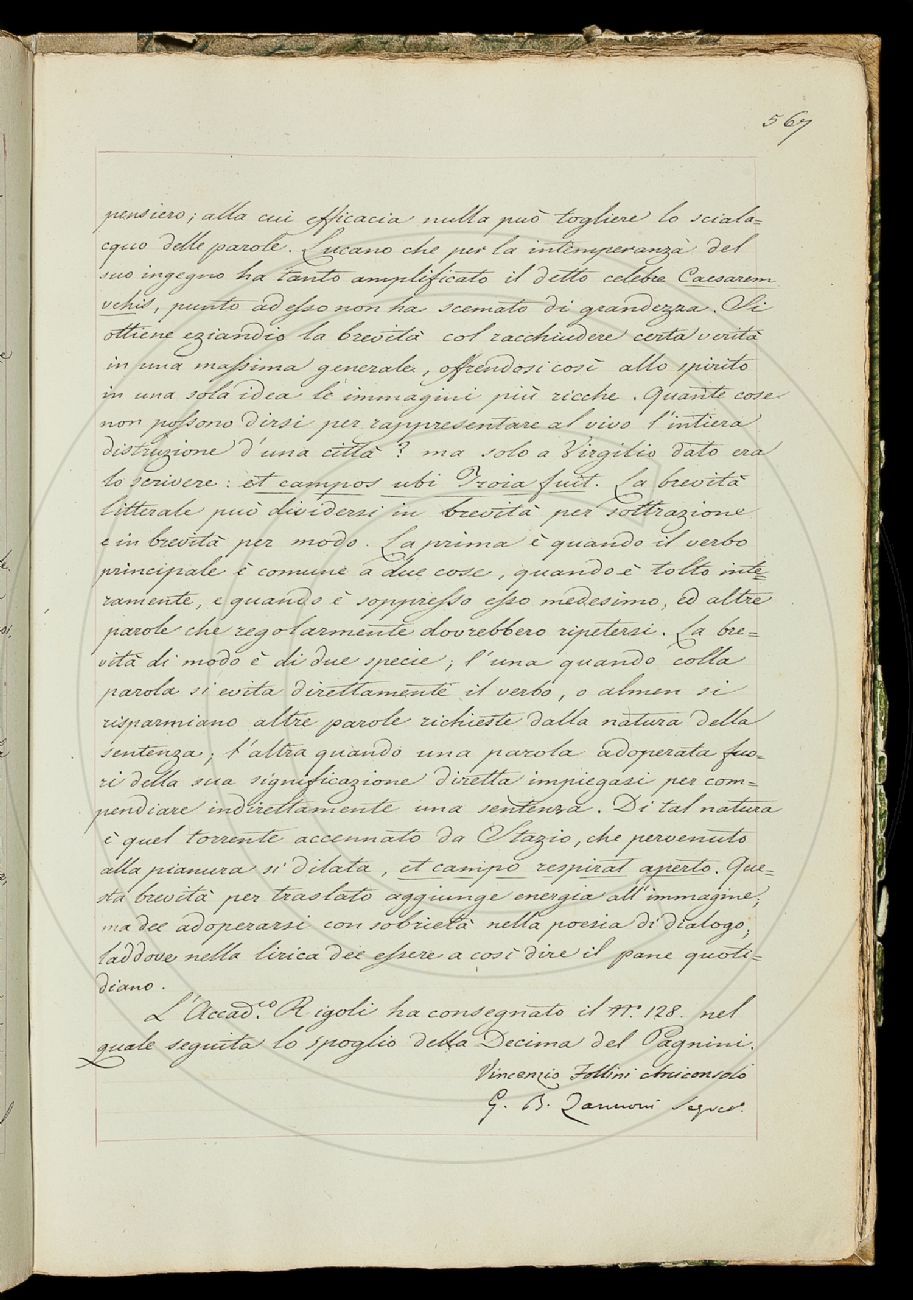 567
pensiero; alla cui efficacia nulla può togliere lo sciala=
cquo delle parole. Lucano che per la intemperanza del
suo ingegno ha tanto amplificato il detto celebre Caesarem
vehis, punto ad esso non ha scemato di grandezza. Si
ottiene eziandio la brevità col racchiudere certa verità
in una massima generale, offrendosi così allo spirito
in una sola idea le immagini più ricche. Quante cose
non possono dirsi per rappresentare al vivo l'intiera
distruzione d'una città? ma solo a Virgilio dato era
lo scrivere: et campos ubi Troia fuit. La brevità
litterale può dividersi in brevità per sottrazione
e in brevità per modo. La prima è quando il verbo
principale è comune a due cose, quando è tolto inte=
ramente, e quando è soppresso esso medesimo, ed altre
parole che regolarmente dovrebbero ripetersi. La bre=
vità di modo è di due specie; l'una quando colla
parola si evita direttamente il verbo, o almen si
risparmiano altre parole richieste dalla natura della
sentenza; l'altra quando una parola adoperata fuo=
ri della sua significazione diretta impiegasi per com=
pendiare indirettamente una sentenza. Di tal natura
è quel torrente accennato da Stazio, che pervenuto
alla pianura si dilata, et campo respirat aperto. Que=
sta brevità per traslato aggiunge energia all'immagine,
ma dee adoperarsi con sobrietà nella poesia di dialogo,
laddove nella lirica dee essere a così dire il pane quoti=
diano.
L'Accad.co Rigoli ha consegnato il N.o 128. nel
quale seguita lo spoglio della Decima del Pagnini.
Vincenzio Follini Arciconsolo
G. B. Zannoni Segret.